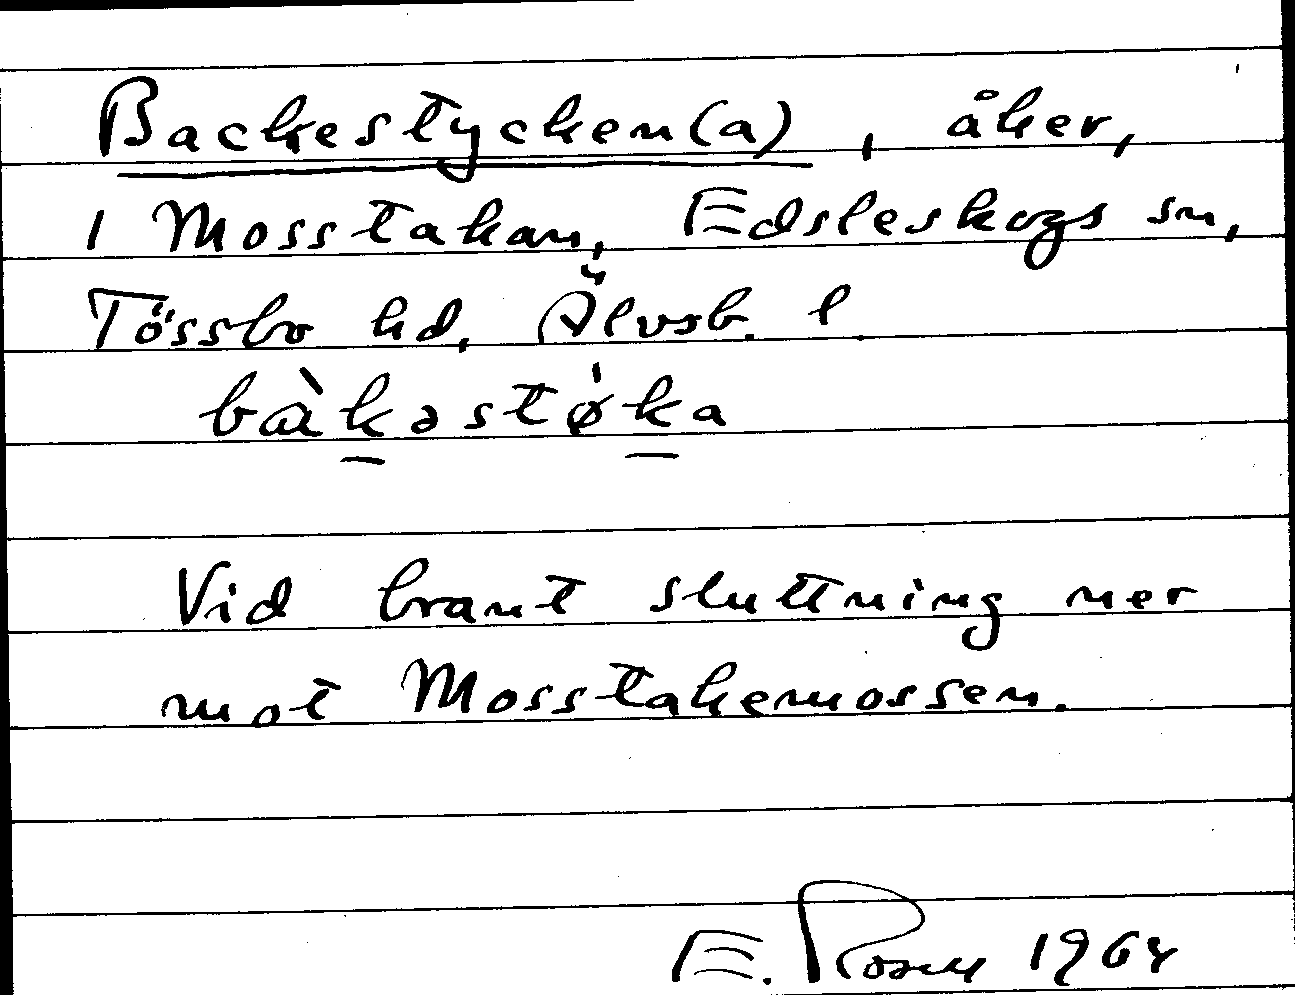 Backestycken(a), åker,
1 Mosstakan, Edsleskogs sn,
Tössbo hd, Älvsb. l.
bàkəstø̍ka
Vid brant sluttning ner
mot Mosstakemossen.
E. Rosell 1964